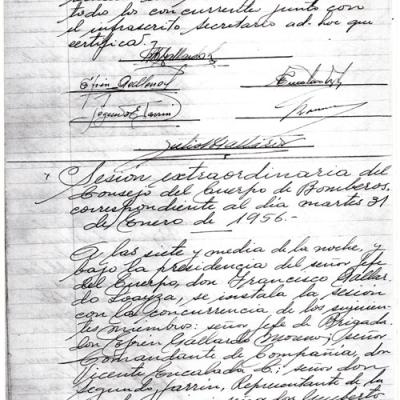 todo los concurrente junto con
el infrascrito secretario ad-hoc que
certifica.-
Efrén Gallardo
Segundo E. Jarrín
Sesión extraordinaria del
Consejo del Cuerpo de Bomberos,
correspondiente al día martes 31
de Enero de 1956.-
A las siete y media de la noche, y
bajo la presidencia del señor Jefe
del Cuerpo, don Francisco Gallar
do Loayza, se instala la sesión
con la concurrencia de los siguien
tes miembro: señor Jefe de Brigada
don Efrén Gallardo Moscoso; señor
Comandante de Compañía, don
Vicente Encalada E; señor don
Segundo Jarrín, Representante de la
Humberto